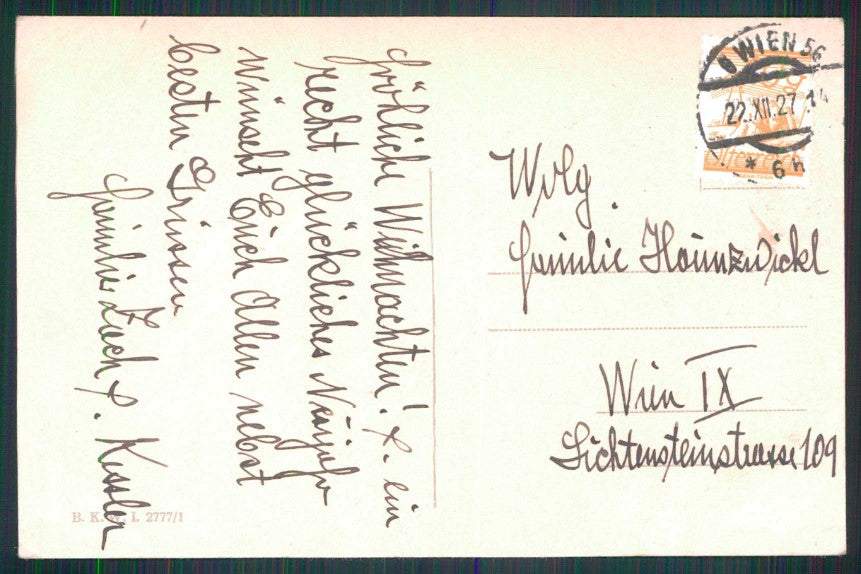 Fröhliche Weihnachten! u. ein
recht glückliches Neujahr
wünscht Euch Allen nebst
besten Grüssen
Familie Zach u. Kessler
B. K. W. I. 2777/1
WIEN 56
22.XII.27.14
* 6h
Österreich
Wlg.
Familie Hainzwickl
Wien IX
Lichtensteinstrasse 109